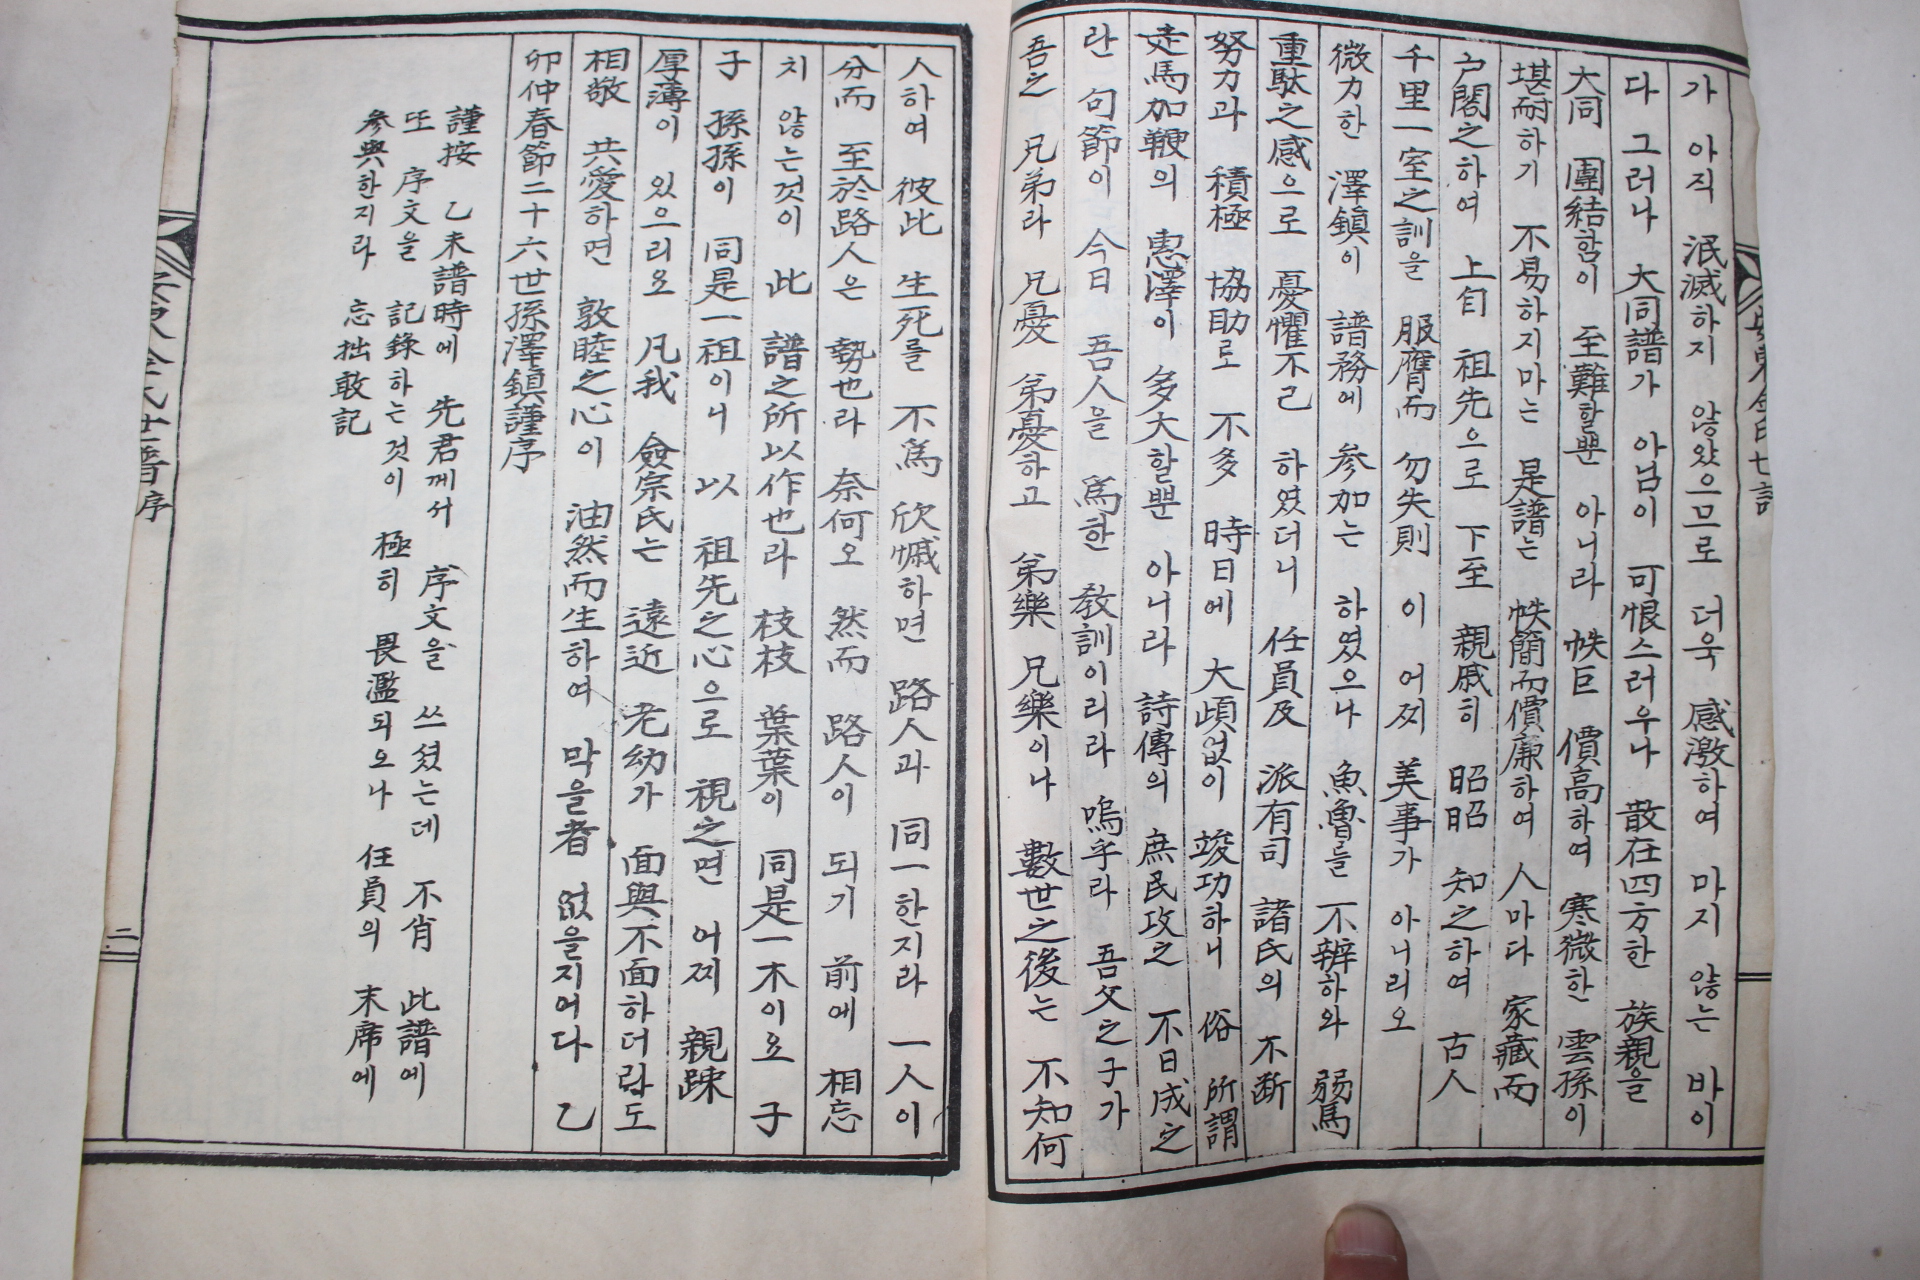 가 아직 泯滅하지 않았으므로 더욱 感激하여 마지 않는 바이
다 그러나 大同譜가 아님이 可恨스러우나 散在四方한 族親을
大同 團結함이 至難할뿐 아니라 帙巨 價高하여 寒微한 雲孫이
堪耐하기 不易하지마는 是譜는 帙簡而價廉하여 人마다 家藏而
戶閣之하여 上自 祖先으로 下至 親戚히 昭昭 知之하여 古人
千里一室之訓을 服膺而 勿失則 이 어찌 美事가 아니리오
微力한 澤鎭이 譜務에 参加는 하였으나 魚魯를 不辨하와 弱馬
重駄之感으로 憂懼不已 하였더니 任員及 派有司 諸氏의 不断
努力과 積極 協助로 不多 時日에 大頉없이 竣功하니 俗 所謂
走馬加鞭의 惠澤이 多大할뿐 아니라 詩傳의 庶民攻之 不日成之
란 句節이 今日 吾人을 爲한 敎訓이리라 嗚乎라 吾父之子가
吾之 兄弟라 兄憂 弟憂하고 弟樂 兄樂이나 數世之後는 不知何
人하여 彼此 生死를 不爲 欣慽하면 路人과 同一한지라 一人이
分而 至於路人은 勢也라 奈何오 然而 路人이 되기 前에 相忘
치 않는것이 此 譜之所以作也라 枝枝 葉葉이 同是一木이요 子
子 孫孫이 同是一祖이니 以 祖先之心으로 視之면 어찌 親踈
厚薄이 있으리요 凡我 僉宗氏는 遠近 老幼가 面與不面하더람도
相敬 共愛하면 敦睦之心이 油然而生하여 막을者 없을지어다 乙
卯仲春節二十六世孫澤鎭謹序
謹按 乙未譜時에 先君께서 序文을 쓰셨는데 不肖 此譜에
또 序文을 記錄하는것이 極히 畏濫되오나 任員의 末席에
参與한지라 忘拙敢記
金氏世譜序
二